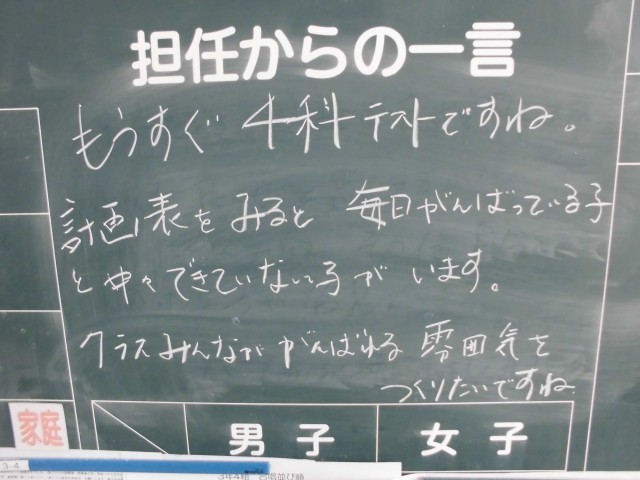 担任からの一言
もうすぐ 4科テストですね。
計画表をみると 毎日がんばっている子
と中々できていない子がいます。
クラスみんなががんばれる雰囲気を
つくりたいですね
家庭
男子
女子
3-4
3年4組 合唱並び順